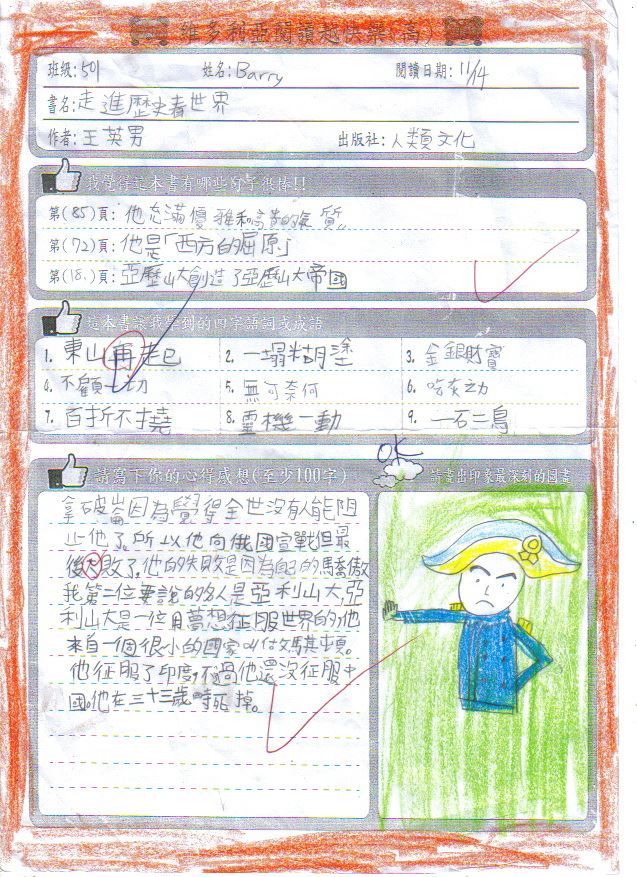 維多利亞閱讀越快樂(高)
班級:501 姓名:Barry 閱讀日期:11/14
書名:走進歷史者世界
作者:王英男 出版社:人類文化
我覺得這本書有哪些句子很棒!!
第(85)頁:他充滿優雅和高貴的氣質。
第(72)頁:他是「西方的屈原」
第(18.)頁:亞歷山大創造了亞歷山大帝國
這本書讓我學到的四字語詞或成語
1. 東山再起 2. 一塌糊塗 3. 金銀財寶
4. 不顧一切 5. 無可奈何 6. 吹灰之力
7. 百折不撓 8. 靈機一動 9. 一石二鳥
OK
請寫下你的心得感想(至少100字) 請畫出印象最深刻的圖畫
拿破崙因為覺得全世沒有人能阻
止他了。所以他向俄國宣戰但最
後失敗了。他的失敗是因為自己的驕傲
我第二位要說的名人是亞利山大,亞
利山大是一位用夢想征服世界的,他
來自一個很小的國家叫做馬其頓。
他征服了印度,不過他還沒征服中
國。他在三十三歲時死掉。